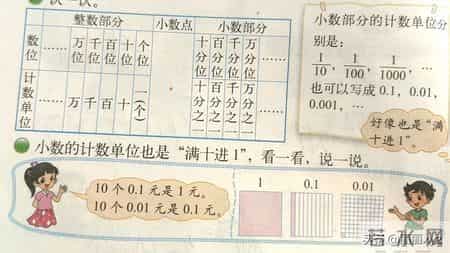 整数部分 小数点 小数部分
数位 …… 万位 千位 百位 十位 个位 十分位 百分位 千分位 万分位 ……
计数单位 …… 万 千 百 十 一(个) 十分之一 百分之一 千分之一 万分之一 ……
小数部分的计数单位分
别是:
1/10, 1/100, 1/1000, …
也可以写成 0.1, 0.01,
0.001, …
好像也是“满
十进1”。
小数的计数单位也是“满十进1”,看一看,说一说。
10个0.1元是1元。
10个0.01元是0.1元。
1 0.1 0.01